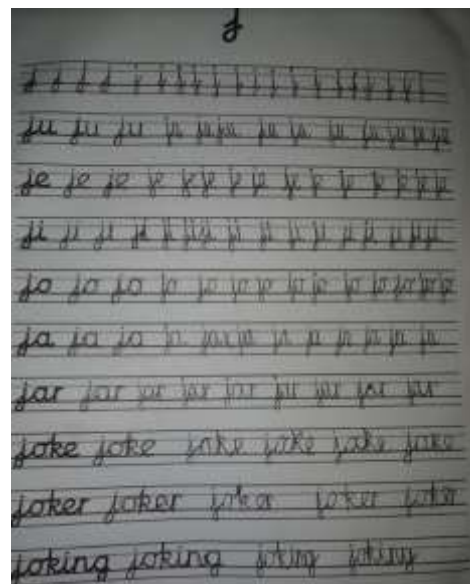 j
j j j j j j j j j j j j j j j j j j
ju ju ju ju ju ju ju ju ju ju ju ju ju
je je je je je je je je je je je je je
ji ji ji ji ji ji ji ji ji ji ji ji ji
jo jo jo jo jo jo jo jo jo jo jo jo jo
ja ja ja ja ja ja ja ja ja ja ja ja
jar jar jar jar jar jar jar jar jar
joke joke joke joke joke joke
joker joker joker joker joker
joking joking joking joking